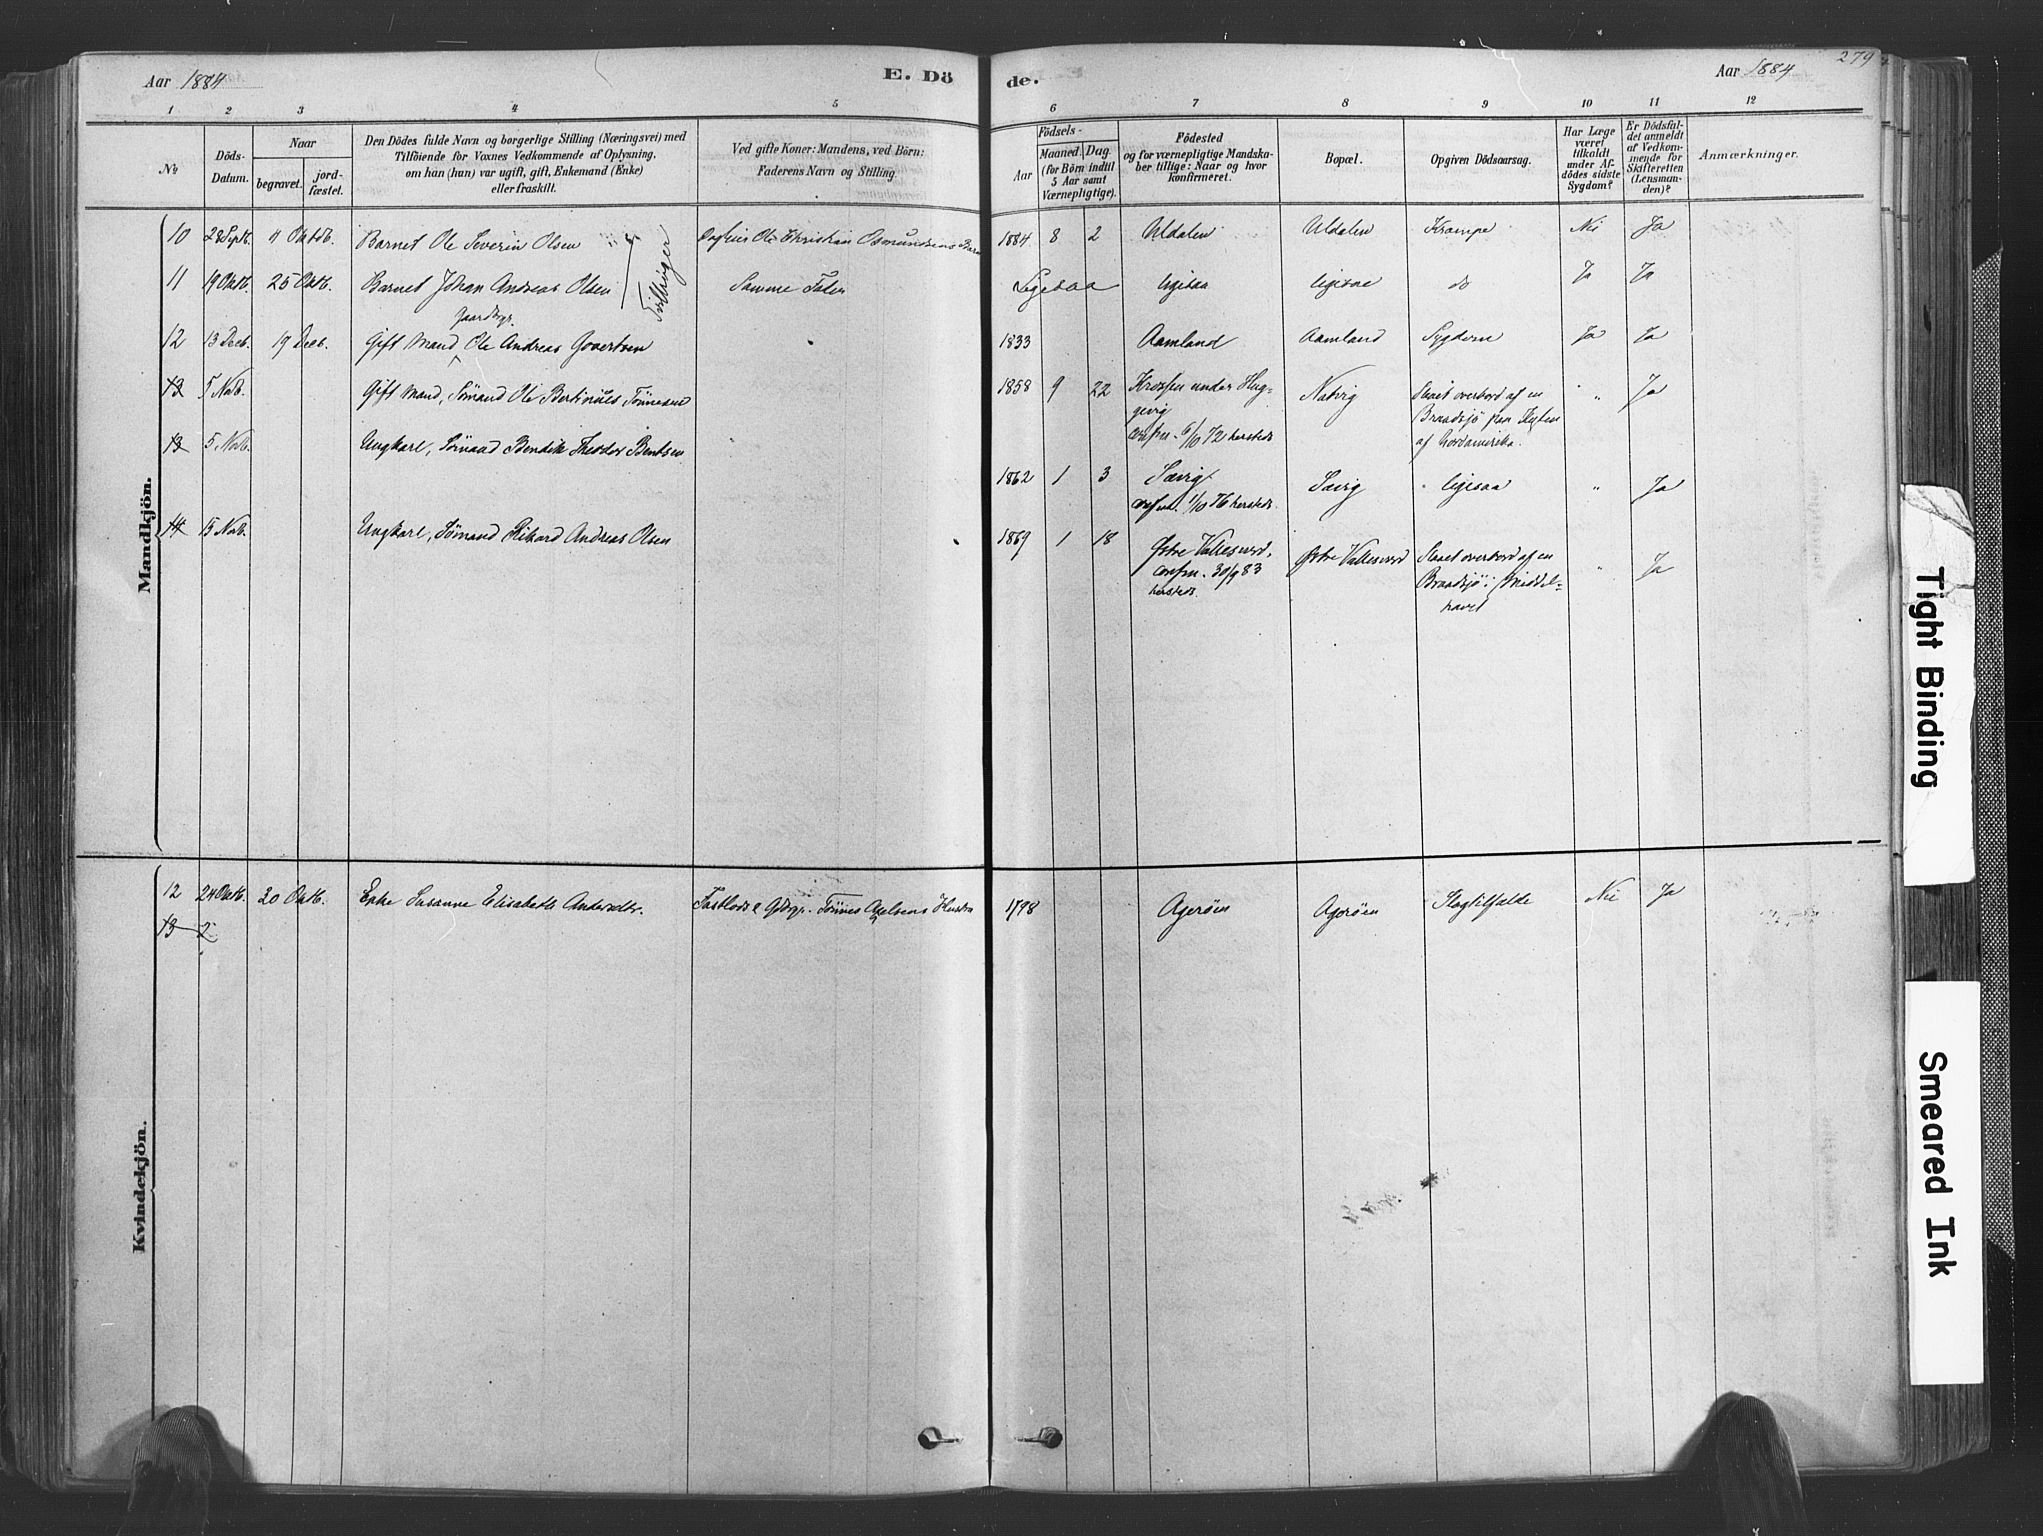 Aar 1884
E. Dö
de.
Aar 1884
279
1 2 3 4 5 6 7 8 9 10 11 12
No
Döds-Datum.
Naar
begravet. jordfæstet.
Den Dödes fulde Navn og borgerlige Stilling (Næringsvei) med
Tilföiende for Voxnes Vedkommende af Oplysning,
om han (hun) var ugift, gift, Enkemand (Enke)
eller fraskilt.
Ved gifte Koner: Mandens, ved Börn:
Faderens Navn og Stilling
Födsels-
Aar Maaned Dag
(for Börn indtil
5 Aar samt
Værnepligtige).
Födested
og for værnepligtige Mandska-
ber tillige: Naar og hvor
konfirmeret.
Bopæl.
Opgiven Dödsaarsag.
Har Læge
været
tilkaldt
under Af-
dödes sidste
Sygdom?
Er Dödsfal-
det anmeldt
af Vedkom-
mende for
Skifteretten
(Lensman-
den)?
Anmærkninger.
Mandkjön.
10 28 Septb. 4 Oktb. Barnet Ole Severin Olsen Ole Christian Osmundsens 1884 8 2 Uldalen Uldalen Krampe Nei Ja
Tvillinger
11 19 Oktb. 25 Oktb. Barnet Johan Andreas Olsen Samme Fader Ligesaa ligesaa ligesaa do Ja Ja
Gaardbgr.
12 13 Decb. 19 Decb. Gift Mand Ole Andreas Govertsen 1833 Aamland Aamland Sygdom Ja Ja
13 5 Novb. Gift Mand, Sömand Ole Bertinius Tönnesen 1858 9 22 Krossen under Hæg-
gevig
confm. 6/10 72 hersteds Natvig Slaaet overbord af en
Braadsjö paa Kysten
af Nordamerika. " Ja
13 5 Novb. Ungkarl, Sömand Bendik Theodor Bentsen 1862 1 3 Sævig
confm. 1/10 76 hersteds. Sævig ligesaa " Ja
14 15 Novb. Ungkarl, Sömand Rikard Andreas Olsen 1869 1 18 Östre Vallesverd,
confm. 30/9 83
hersteds. Östre Vallesverd Slaaet overbord af en
Braadsjö i Middel-
havet " Ja
Kvindekjön.
12 24 Oktb. 30 Oktb. Enke Susanne Elisabeth Andersdtr. Gbgr. Tönnes Axelsens 1798 Ageröen Ageröen Slagtilfælde Nei Ja
13 2
Tight Binding
Smeared Ink